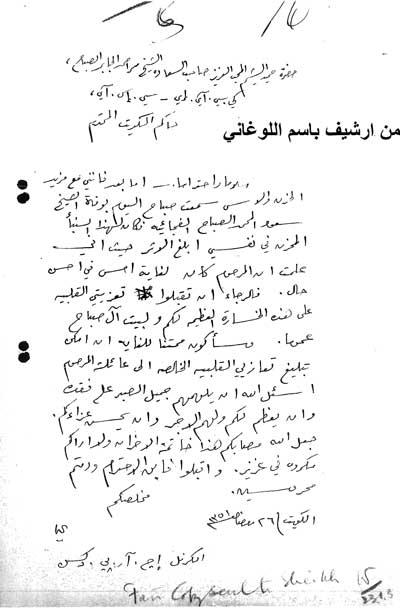 حضرة حميد الشيم المحب العزيز صاحب السعادة الشيخ سر احمد الجابر الصباح،
كي. سي. آي. ئي – سي. إس. آي،
حاكم الكويت المحترم
من ارشيف باسم اللوغاني
سلاما واحتراما. — اما بعد فانني مع مزيد
الحزن والاسى سمعت صباح اليوم بوفاة الشيخ
سعود المحمد الصباح الفجائية فكان لهذا النبأ
المحزن في نفسي ابلغ الاثر حيث انني
علمت ان المرحوم كان لغاية امس في احسن
حال. فالرجاء ان تقبلوا تعزيتي القلبية
على هذه الخسارة العظيمة لكم ولبيت آل صباح
عموما. وسأكون ممتنا للغاية ان امكن
تبليغ تعازيي القلبية الخالصة الى عائلة المرحوم
اسئل الله ان يلهمهم جميل الصبر على فقده
وان يعظم لكم ولهم الاجر وان يحسن عزاءكم.
جعل الله مصابكم هذا خاتمة الاحزان ولا اراكم
مكروه في عزيز. واقبلوا فايق الاحترام ودمتم
محروسين.
مخلصكم
الكويت / ٢٦ رمضان ١٣٥١
الكرنل إچ. آر. پي. دكسن
Fair Copy sent to Sheikh